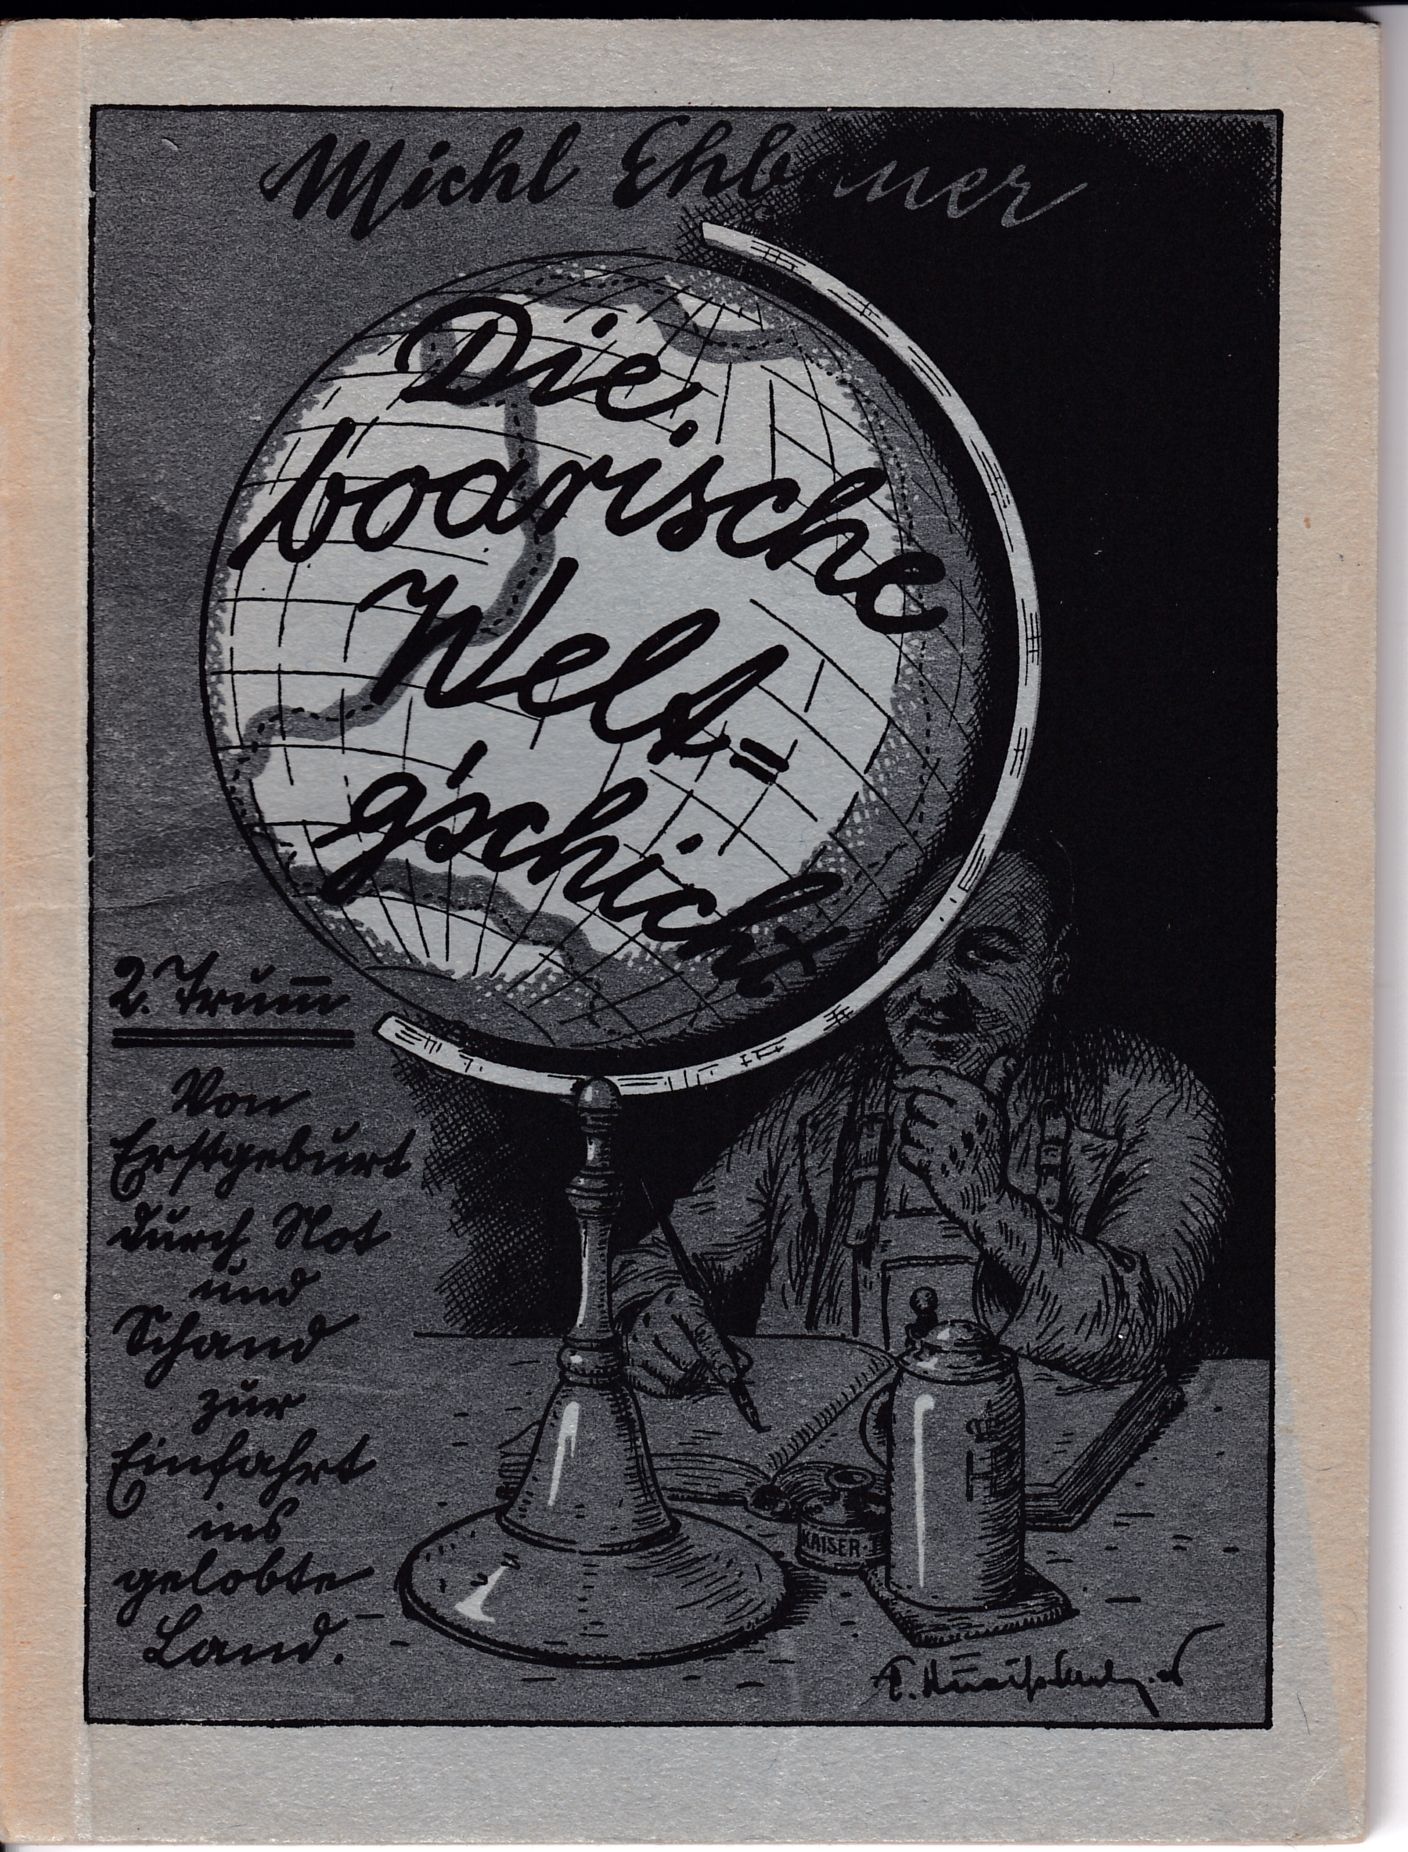 Michl Ehbauer
Die
boarische
Welt=
g'schicht
2. Trumm
Von
Erstgeburt
durch Not
und
Schand
zur
Einfahrt
ins
gelobte
Land.
KAISER-T